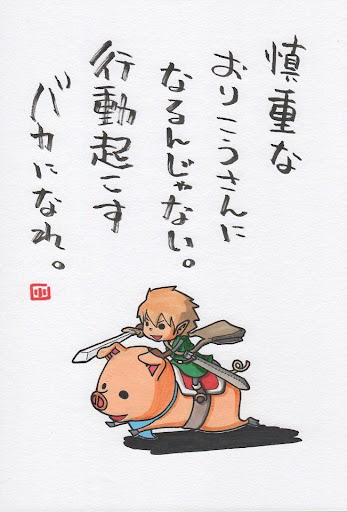 慎重な
おりこうさんに
なるんじゃない。
行動起こす
バカになれ。